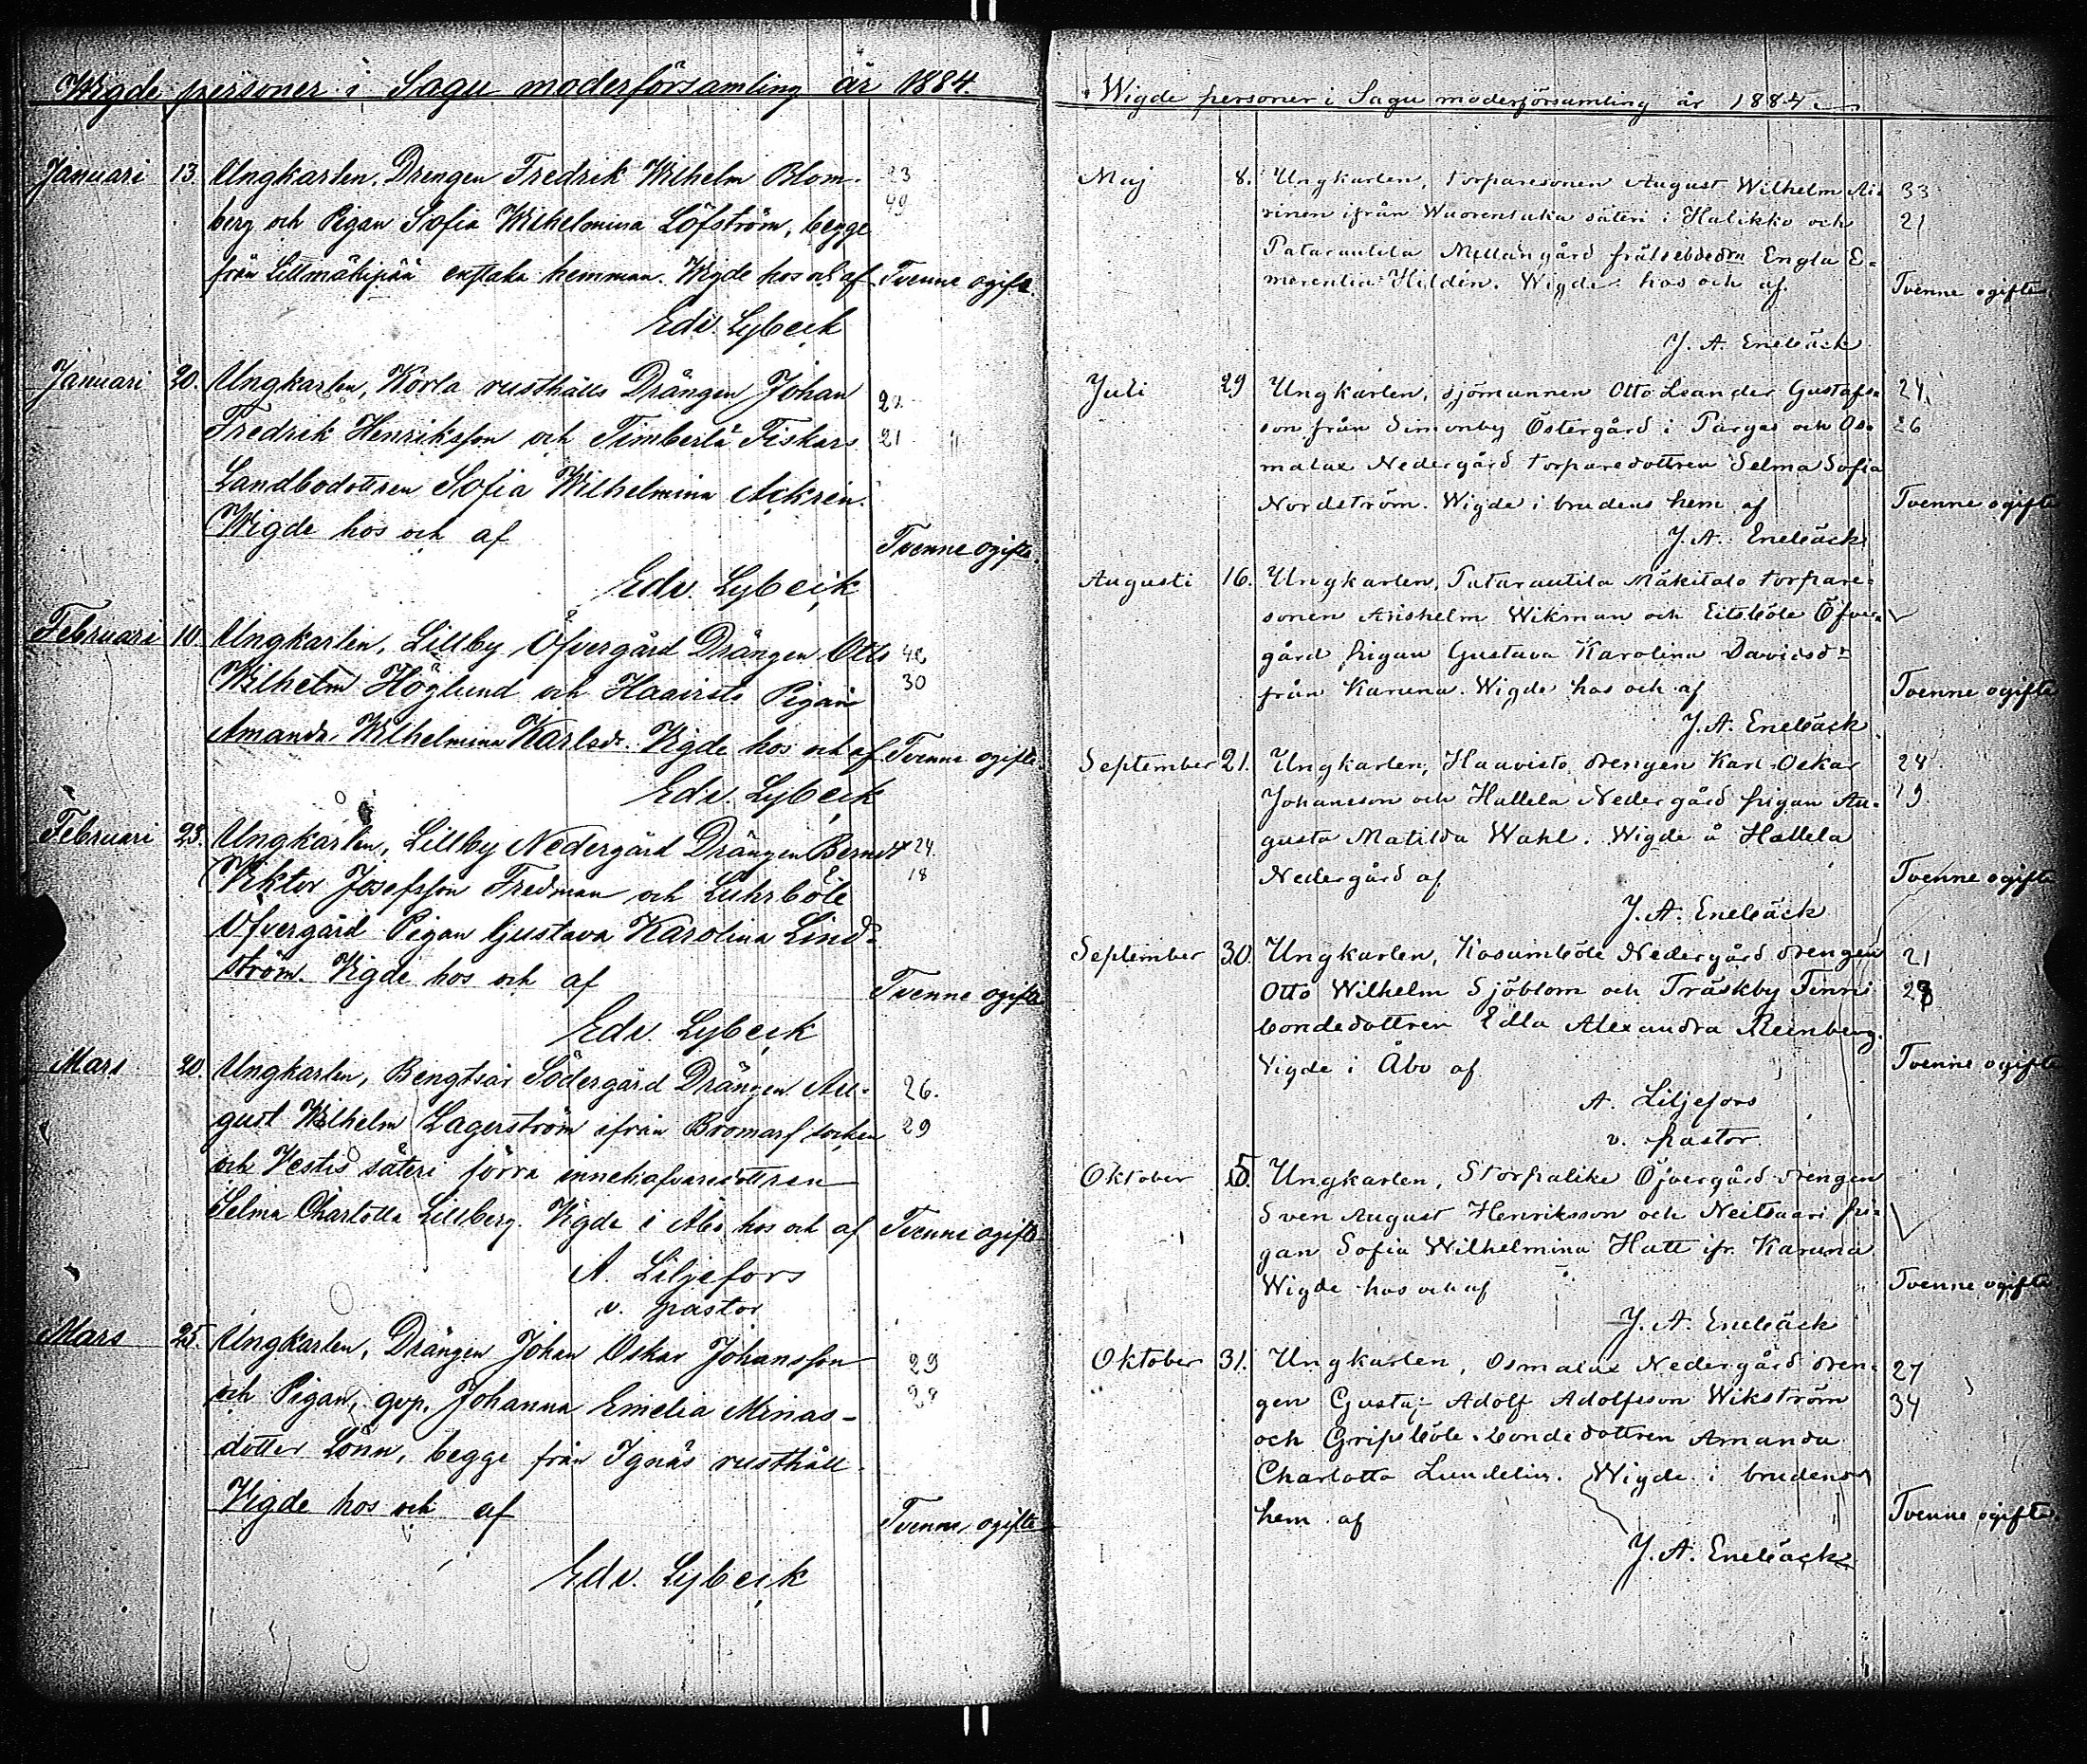 Wigde personer i Sagu moderförsamling år 1884.
Januari 13. Ungkarlen, Drengen Fredrik Wilhelm Blom- 23
berg och Pigan Sofia Wilhelmina Löfström, begge 49
från Lillmäkipää enstaka hemman. Wigde hos och af Tvenne ogifte.
Edv. Lybeck
Januari 20. Ungkarlen, Korla rusthålls Drängen Johan
Fredrik Henriksson och Timberla Fiskars 21
Landbodottren Sofia Wilhelmina Ackrén.
Wigde hos och af Tvenne ogifte.
Edv. Lybeck
Februari 10. Ungkarlen, Lillby Öfvergård Drängen Otto
Wilhelm Höglund och Haavisto Pigan 30
Amanda Wilhelmina Karlsdr. Vigde hos och af Tvenne ogifte.
Edv. Lybeck
Februari 23. Ungkarlen, Lillby Nedergård Drängen Berndt 24
Viktor Josefsson Fredman och Luhrböle 18
Öfvergård Pigan Gustava Karolina Lind-
ström. Vigde hos och af Tvenne ogifte
Edv. Lybeck
Mars 20. Ungkarlen, Bengtsår Södergård Drängen Au- 26.
gust Wilhelm Lagerström ifrån Bromarf socken 29
och Vestis säteri förra innehafvaredottren
Selma Charlotta Lillberg. Vigde i Åbo hos och af Tvenne ogifte
A. Liljefors
v. pastor
Mars 25. Ungkarlen, Drängen Johan Oskar Johansson 29
och Pigan, qvp. Johanna Emelia Minas-
dotter Lönn, begge från Ignäs rusthåll.
Vigde hos och af Tvenne ogifte
Edv. Lybeck
Wigde personer i Sagu moderförsamling år 1884.
Maj 8. Ungkarlen, torparesonen August Wilhelm 33
rinen ifrån Wuorentaka säteri i Halikko och 21
Patarautila Mellangård frälsebdedrn Engla E-
merentia Hildén. Wigde hos och af Tvenne ogifte
J. A. Enebäck
Juli 29 Ungkarlen, sjömannen Otto Leander Gustafs- 24.
son från Simonby Östergård i Pargas och Os- 26
malax Nedergård torparedottren Selma Sofia
Nordström. Wigde i brudens hem af Tvenne ogifte
J. A. Enebäck
Augusti 16. Ungkarlen, Patarautila Mäkitalo torpare-
sonen Anshelm Wikman och Eitsböle Öfver-
gård pigan Gustava Karolina Davidsdr
från Karuna. Wigde hos och af Tvenne ogifte
J. A. Enebäck
September 21. Ungkarlen, Haavisto drengen Karl Oskar 24
Johansson och Hallela Nedergård pigan Au- 19
gusta Matilda Wahl. Wigde å Hallela
Nedergård af Tvenne ogifte
J. A. Enebäck
September 30. Ungkarlen, Kosamböle Nedergård drengen 21
Otto Wilhelm Sjöblom och Träskby Finni
bondedottren Edla Alexandra Reinberg.
Vigde i Åbo af Tvenne ogifte
A. Liljefors
v. pastor
Oktober 5. Ungkarlen, Storpalike Öfvergård drengen
Sven August Henriksson och Neitsaari pi-
gan Sofia Wilhelmina Hatt ifr. Karuna
Wigde hos och af Tvenne ogifte
J. A. Enebäck
Oktober 31. Ungkarlen, Osmalax Nedergård dren- 27
gen Gustaf Adolf Adolfsson Wikström 34
och Gripsböle bondedottren Amanda
Charlotta Lundelin. Wigde i brudens
hem af Tvenne ogifte.
J. A. Enebäck